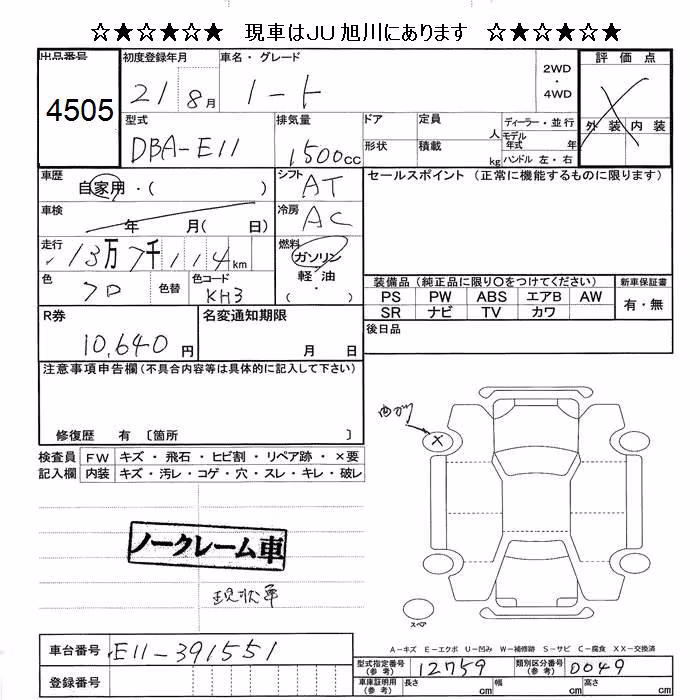 ☆★☆★☆★ 現車はJU旭川にあります ☆★☆★☆★
出品番号 4505
初度登録年月 21 8月
車名・グレード ノート
2WD
・
4WD
評価点
外装 内装
型式 DBA-E11
排気量 1500cc
ドア
定員 人
形状
積載 kg
ディーラー・並行
モデル年式 年
ハンドル 左・右
車歴 自家用・( )
シフト AT
セールスポイント(正常に機能するものに限ります)
車検 年 月( 日)
冷房 AC
走行 13万7千114km
燃料 ガソリン
軽・油
・
( )
色 クロ 色替 色コード KH3
装備品(純正品に限り〇をつけてください) 新車保証書
PS PW ABS エアB AW 有・無
SR ナビ TV カワ
R券 10,640円
名変通知期限 月 日
後日品
注意事項申告欄(不具合内容等は具体的に記入して下さい)
修復歴 有 〔箇所 〕
検査員 FW キズ・飛石・ヒビ割・リペア跡・×要
記入欄 内装 キズ・汚レ・コゲ・穴・スレ・キレ・破レ
×
ノークレーム車
現状車
スペア
A-キズ E-エクボ U-凹み W-補修跡 S-サビ C-腐食 XX-交換済
車台番号 E11-391551
登録番号
型式指定番号(参考) 12759 類別区分番号(参考) 0049
車庫証明用(参考) 長さ cm 幅 cm 高さ cm